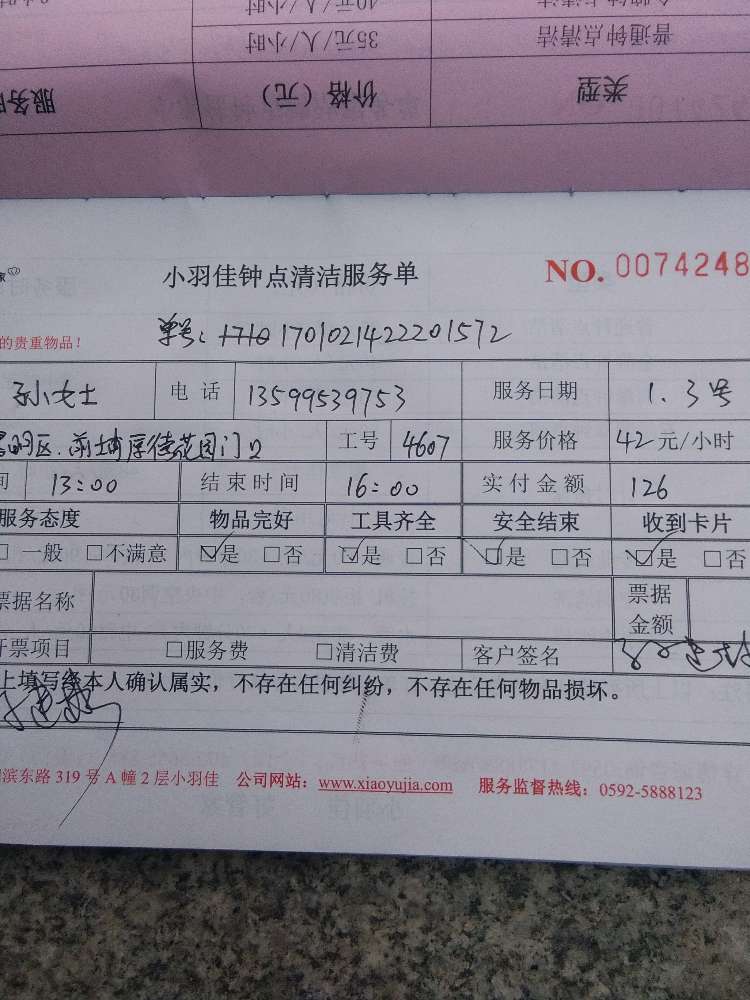 普通钟点清洁 35元/人/小时
类型 价格（元） 服务时
小羽佳钟点清洁服务单 NO. 0074248
的贵重物品！ 单号：1710 1701021422201572
孙女士 电话 13599539753 服务日期 1.3号
明区.前埔厚德花园门口 工号 4607 服务价格 42元/小时
间 13:00 结束时间 16:00 实付金额 126
服务态度 物品完好 工具齐全 安全结束 收到卡片
□一般 □不满意 ☑是 □否 ☑是 □否 ☑是 □否 ☑是 □否
票据名称 票据金额
开票项目 □服务费 □清洁费 客户签名
上填写经本人确认属实，不存在任何纠纷，不存在任何物品损坏。
滨东路 319 号 A 幢 2 层小羽佳 公司网站：www.xiaoyujia.com 服务监督热线：0592-5888123